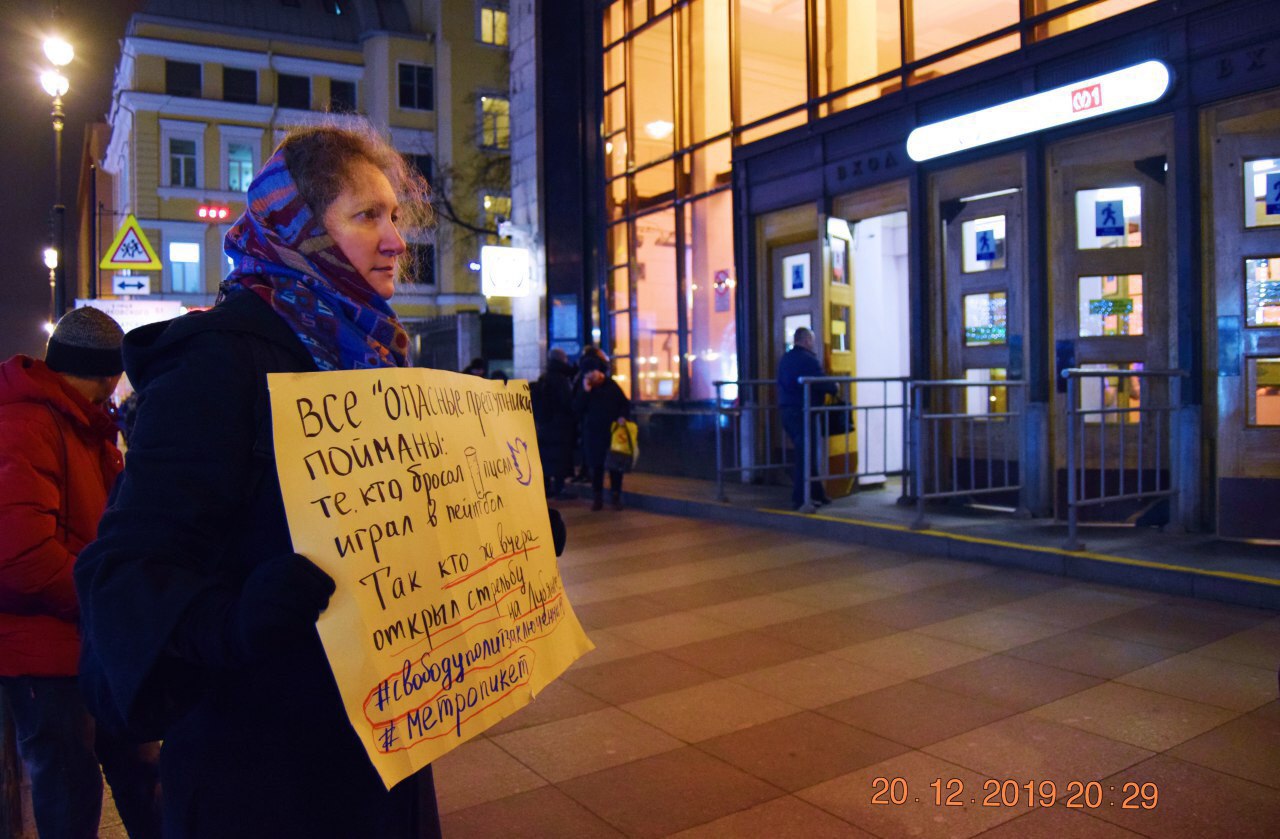 ВСЕ "ОПАСНЫЕ ПРЕСТУПНИКИ"
ПОЙМАНЫ:
те, кто бросал писал
играл в пейнтбол.
Так кто же вчера
открыл стрельбу
на Лубянке
#свободуполитзаключённым
#метропикет
ВХОД
М1
20.12.2019 20:29